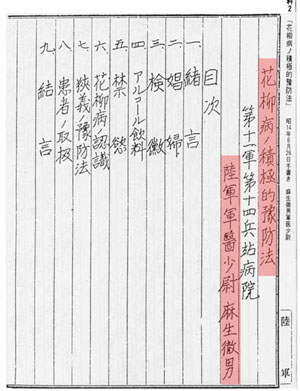 料2
「花柳病ノ積極的豫防法」 昭14年6月26日手書き 麻生徹男軍医少尉
花柳病ノ積極的豫防法
第十一軍第十四兵站病院
陸軍軍醫少尉 麻生徹男
目次
一、緒言
二、娼婦
三、検黴
四、アルコール飲料
五、禁慾
六、花柳病ノ認識
七、狹義ノ豫防法
八、患者ノ取扱
九、結言
陸軍